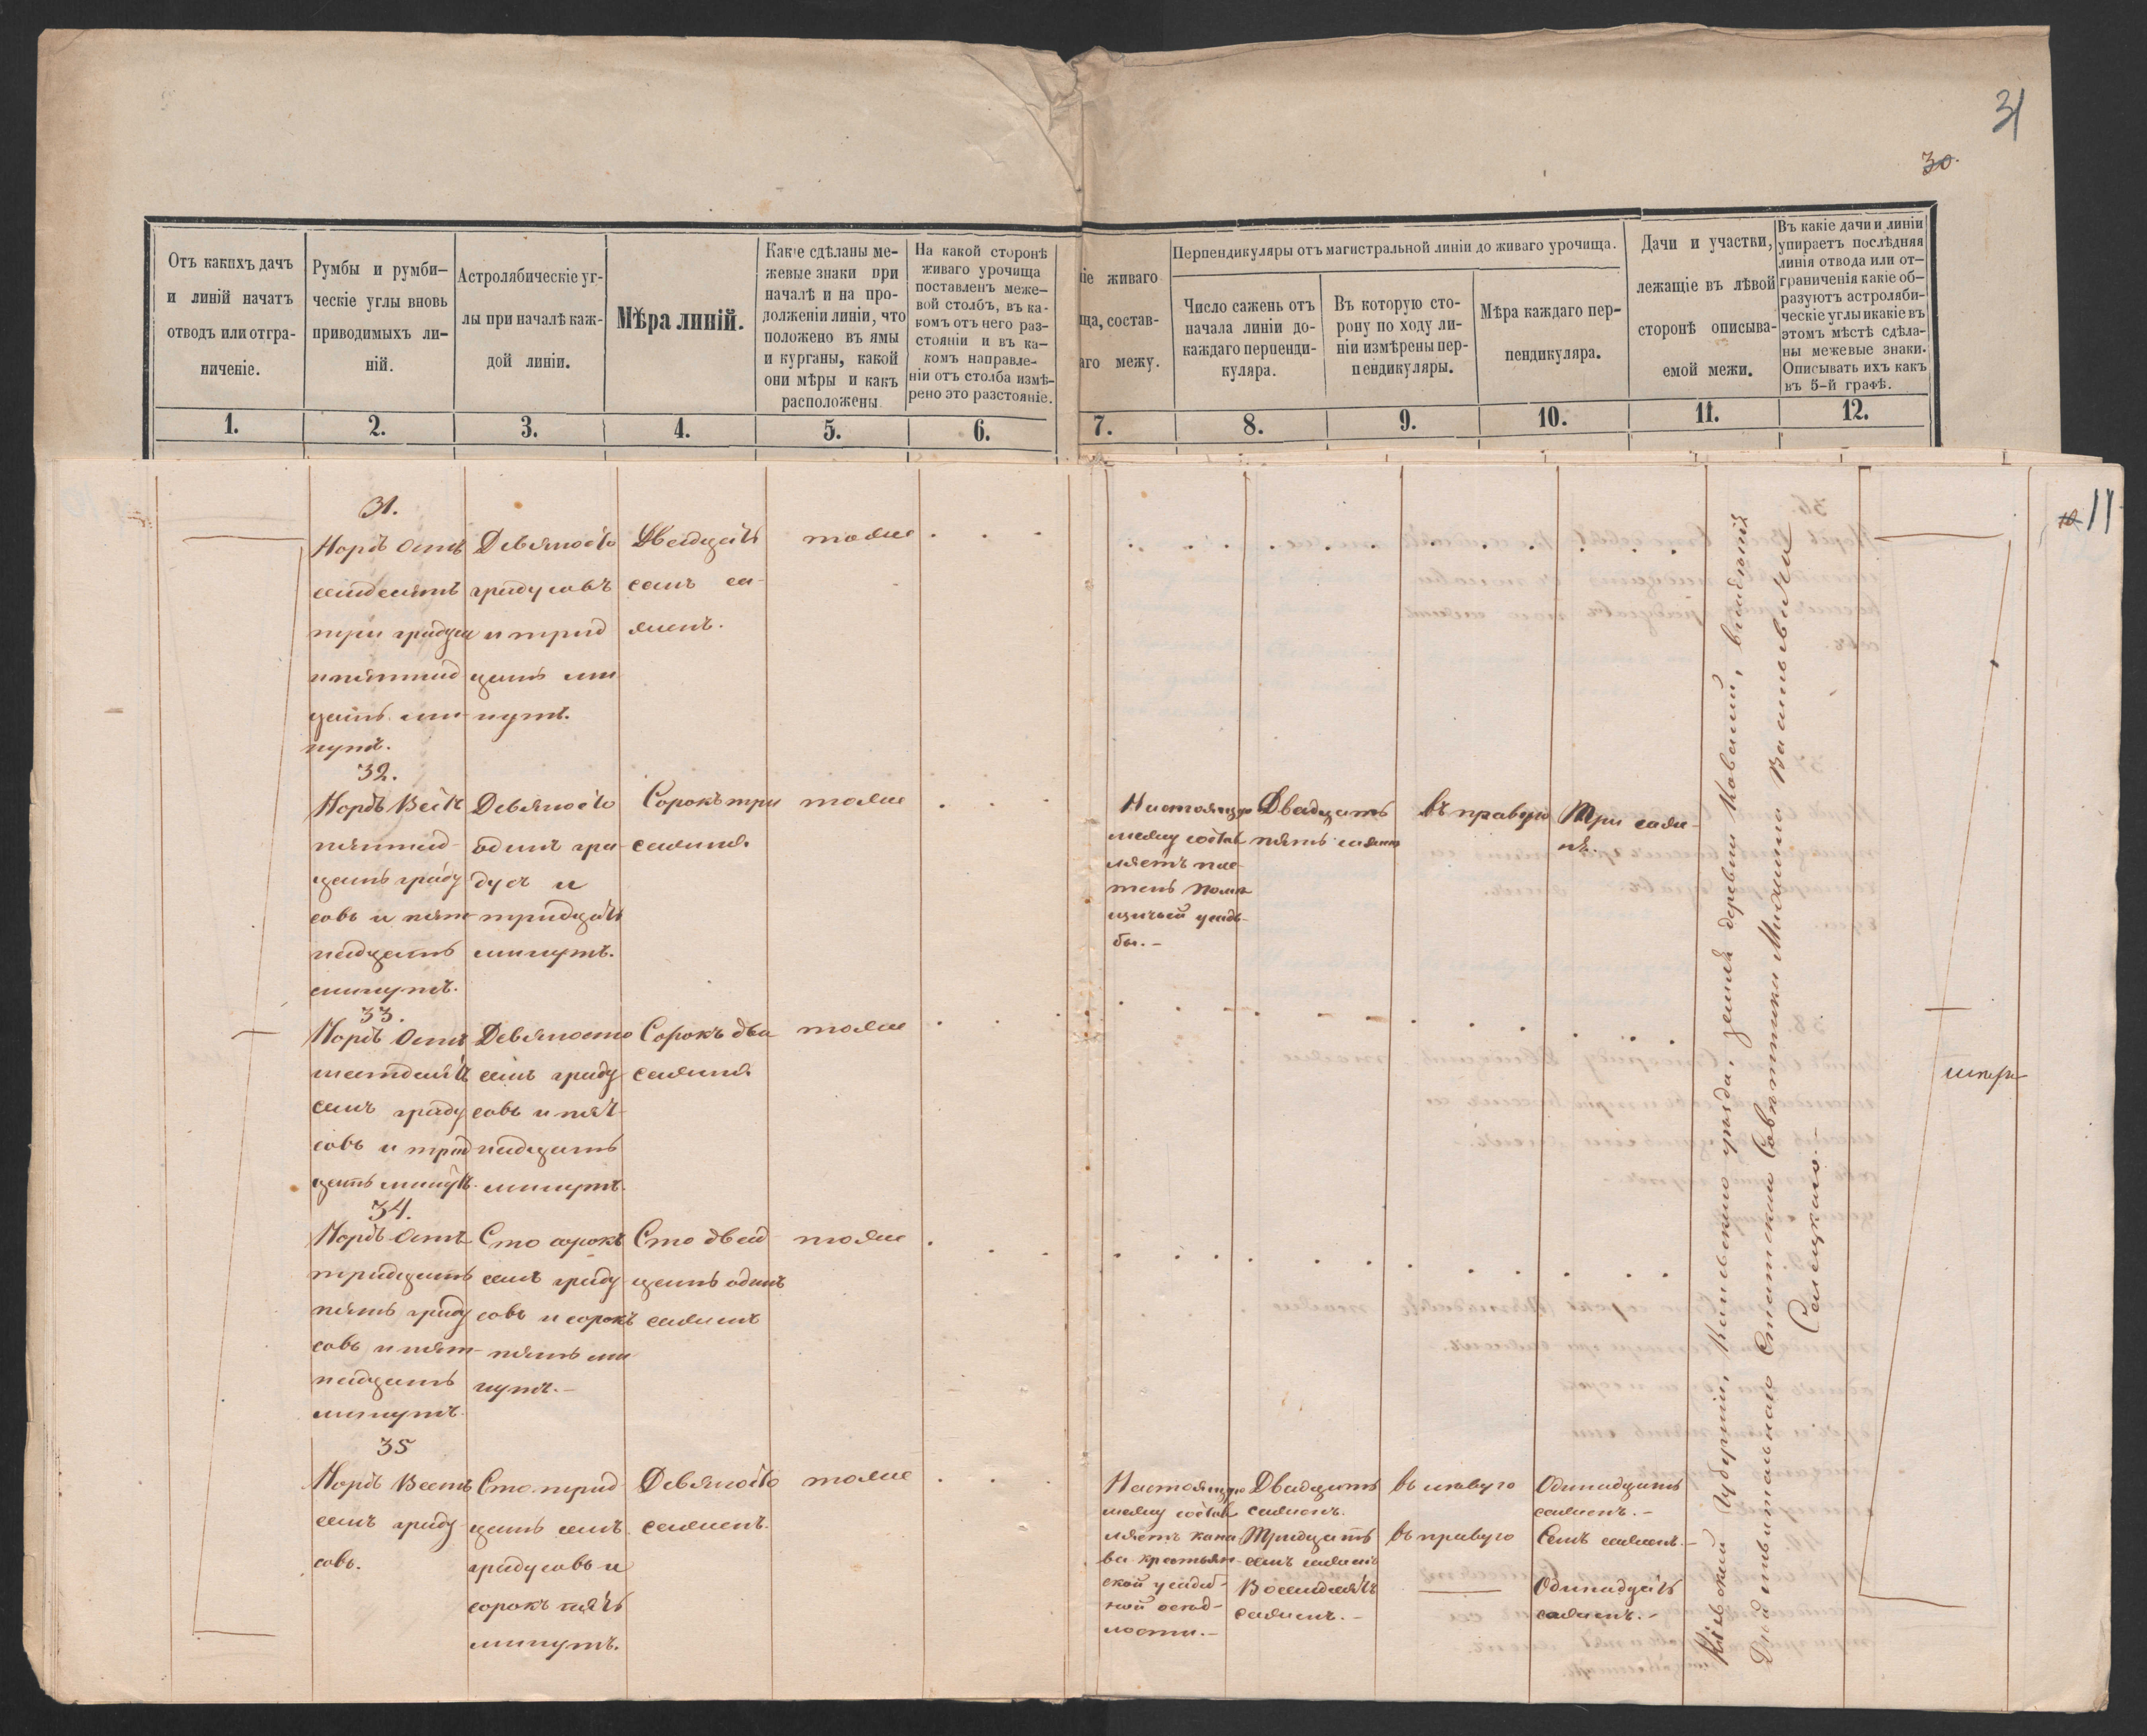 31
30.
Отъ какихъ дачъ
и линій начатъ
отводъ или отгра-
ниченіе.
Румбы и румби-
ческіе углы вновь
приводимыхъ ли-
ній.
Астролябическіе уг-
лы при началѣ каж-
дой линіи.
Мѣра линій.
Какіе сдѣланы ме-
жевые знаки при
началѣ и на про-
долженіи линіи, что
положено въ ямы
и курганы, какой
они мѣры и какъ
расположены.
На какой сторонѣ
живаго урочища
поставленъ меже-
вой столбъ, въ ка-
комъ отъ него раз-
стояніи и въ ка-
комъ направле-
ніи отъ столба измѣ-
рено это разстояніе.
ніе живаго
ща, состав-
аго межу.
Перпендикуляры отъ магистральной линіи до живаго урочища.
Число сажень отъ
начала линіи до-
каждаго перпенди-
куляра.
Въ которую сто-
рону по ходу ли-
ніи измѣрены пер-
пендикуляры.
Мѣра каждаго пер-
пендикуляра.
Дачи и участки,
лежащіе въ лѣвой
сторонѣ описыва-
емой межи.
Въ какіе дачи и линіи
упираетъ послѣдняя
линія отвода или от-
граниченія какіе об-
разуютъ астроляби-
ческіе углы и какіе въ
этомъ мѣстѣ сдѣла-
ны межевые знаки.
Описывать ихъ какъ
въ 5-й графѣ.
1. 2. 3. 4. 5. 6. 7. 8. 9. 10. 11. 12.
11
31.
Нордъ Остъ
семдесятъ
три градуса
и пятнад
цать ми-
нутъ.
Девяносто
градусовъ
и трид
цать ми
нутъ.
Двадцать
семь са-
женъ.
тоже
32.
Нордъ Вестъ
пятнад-
цать граду
совъ и пят-
надцать
минутъ.
Девяносто
одинъ гра-
дусъ и
тридцать
минутъ.
Сорокъ три
сажня.
тоже
Настоящую
межу состав
ляетъ пле-
тень помѣ
щичьей усадь-
бы.-
Двадцать
пять сажень
въ правую
Три саже-
ня.
33.
Нордъ Остъ
шестдесятъ
семь граду
совъ и трид
цать минутъ.
Девяносто
семь граду
совъ и пят-
надцать
минутъ.
Сорокъ два
сажня.
тоже
34.
Нордъ Остъ
тридцать
пять граду
совъ и пят-
надцать
минутъ.
Сто сорокъ
семь граду
совъ и сорокъ
пять ми
нутъ.-
Сто двад
цать одинъ
сажень
тоже
35
Нордъ Вестъ
семь граду
совъ.
Сто трид
цать семь
градусовъ и
сорокъ пять
минутъ.
Девяносто
саженъ.
тоже
Настоящую
межу состав
ляетъ кана
ва крестьян-
ской усадеб-
ной осѣд-
лости.-
Двадцать
саженъ.
Тридцать
семь сажень
Восемдесятъ
саженъ.-
въ лѣвую
въ правую
Одинадцать
саженъ.-
Семь саженъ.-
Одинадцать
саженъ.-
Кіевской Губерніи, Каневскаго уѣзда, земля деревни Ковалей, владѣнія
Дѣйствительнаго Статскаго Совѣтника Михаила Васильевича